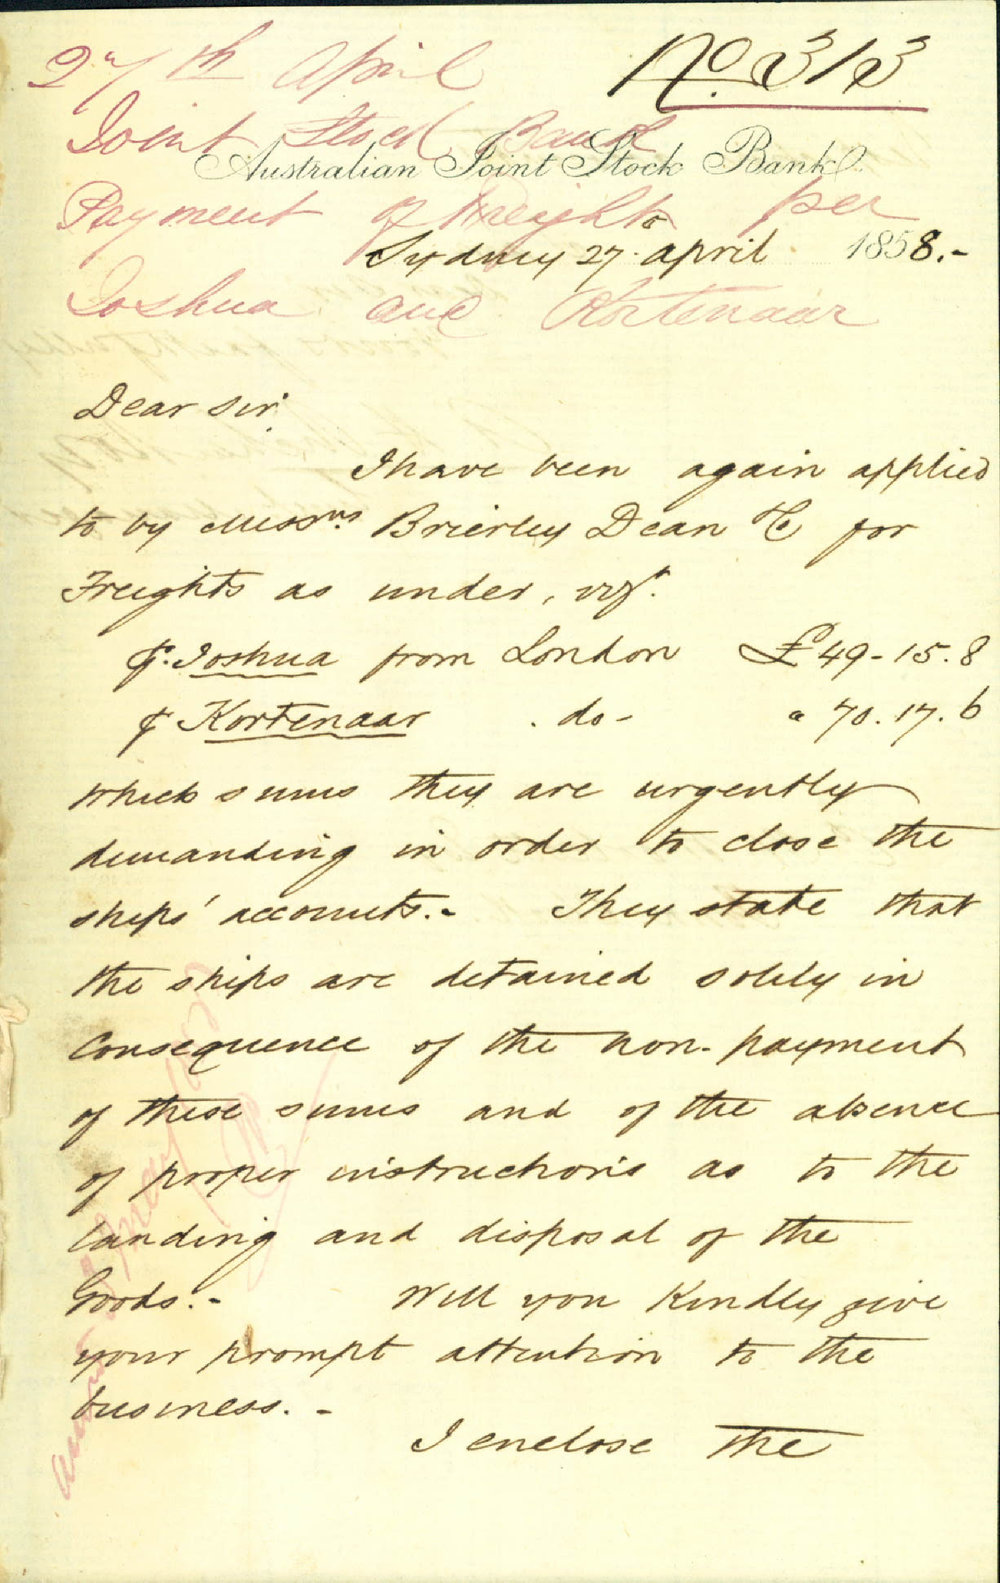 27th April
No. 313
Joint Stock Bank
Australian Joint Stock Bank
Payment of Freights per
Sydney 27. April 1858.-
Joshua and Kortenaar
Dear Sir,
I have been again applied
to by Messrs. Brierley Dean & Co for
Freights as under, vizt.
⅌. Joshua from London £49-15.8
⅌ Kortenaar . do - " 70.17.6
which sums they are urgently
demanding in order to close the
ships' accounts.- They state that
the ships are detained solely in
consequence of the non-payment
of these sums and of the absence
of proper instructions as to the
landing and disposal of the
Goods.- Will you Kindly give
your prompt attention to the
business.-
I enclose the